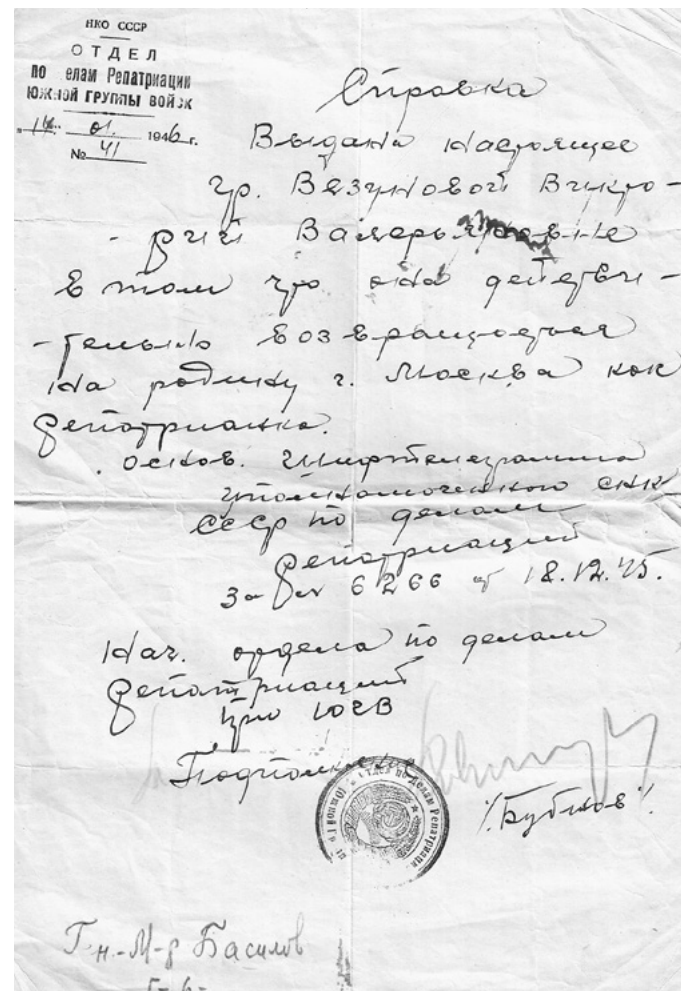 НКО СССР
ОТДЕЛ
по елам Репатриации
ЮЖНОЙ ГРУППЫ ВОЙСК
"14" 01. 1946 г.
№ 41
Справка
Выдана настоящее
гр. Везуновой Викто-
- рии Валерьяновне
в том что она действи-
- тельно возвращается
на родину г. Москва как
репатрианка.
основ. Шифртелеграмма
уполномоченного СНК
СССР по делам
репатриации
За № 6266 от 18.12.45.
Нач. отдела по делам
репатриации
при ЮГВ
Подполковник
/.Бубнов/.
Отдел по Делам Репатриации
Г-н-М-р Басилов